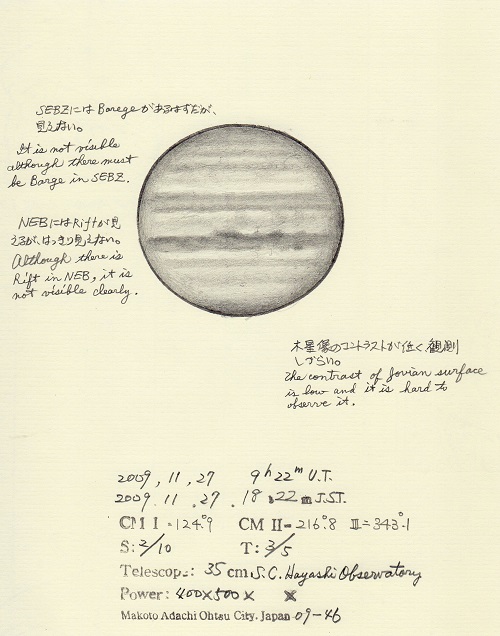 SEBZにはBaregeがあるはずだが、
見えない。
It is not visible
although there must
be Barge in SEBZ.
NEBにはRiftが見
えるが、はっきり見えない。
Although there is
Rift in NEB, it is
not visible clearly.
木星像のコントラストが低く観測
しづらい。
The contrast of Jovian surface
is low and it is hard to
observe it.
2009, 11, 27 9h 22m U.T.
2009. 11. 27. 18h 22m J.S.T.
CM I = 124°.9 CM II = 216°.8 III = 343°.1
S: 2/10 T: 3/5
Telescope: 35cm S.C. Hayashi Observatory
Power: 400×500× ×
Makoto Adachi Ohtsu City. Japan 09-46